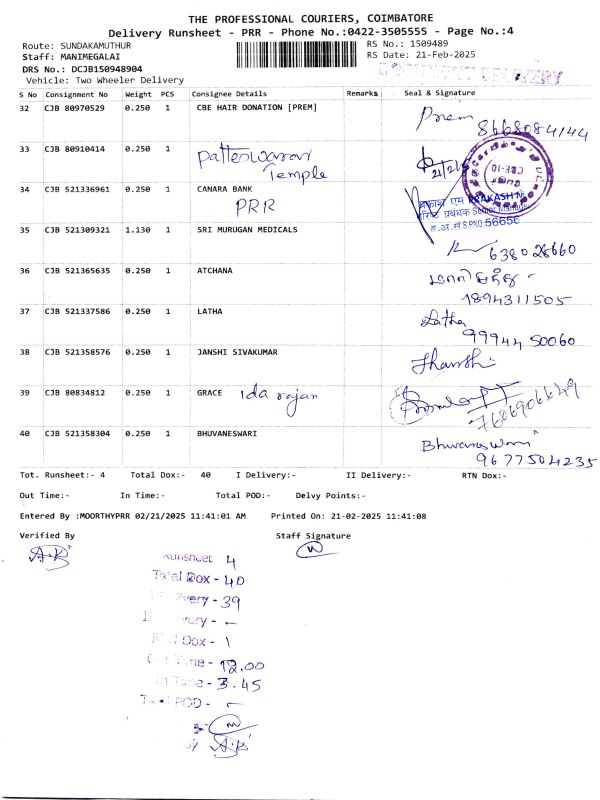 THE PROFESSIONAL COURIERS, COIMBATORE
Delivery Runsheet - PRR - Phone No.:0422-3505555 - Page No.:4
Route: SUNDAKAMUTHUR RS No.: 1509489
Staff: MANIMEGALAI RS Date: 21-Feb-2025
DRS No.: DCJB150948904
Vehicle: Two Wheeler Delivery
S No Consignment No Weight PCS Consignee Details Remarks Seal & Signature
32 CJB 80970529 0.250 1 CBE HAIR DONATION [PREM] Prem
8668084144
33 CJB 80910414 0.250 1 Patteswarar
Temple 21/2/25
34 CJB 521336961 0.250 1 CANARA BANK
PRR
CBE-10
PRAKASH M
Senior Manager
56656
35 CJB 521309321 1.130 1 SRI MURUGAN MEDICALS
638028660
36 CJB 521365635 0.250 1 ATCHANA
1894311505
37 CJB 521337586 0.250 1 LATHA Latha
99944 50060
38 CJB 521358576 0.250 1 JANSHI SIVAKUMAR
39 CJB 80834812 0.250 1 GRACE Ida rajan
7686906649
40 CJB 521358304 0.250 1 BHUVANESWARI
9677504235
Tot. Runsheet:- 4 Total Dox:- 40 I Delivery:- II Delivery:- RTN Dox:-
Out Time:- In Time:- Total POD:- Delvy Points:-
Entered By :MOORTHYPRR 02/21/2025 11:41:01 AM Printed On: 21-02-2025 11:41:08
Verified By Staff Signature
A.K
Runsheet 4
Total Dox - 40
39
Dox - 1
Time - 12.00
Time - 3.45
POD -
A.K